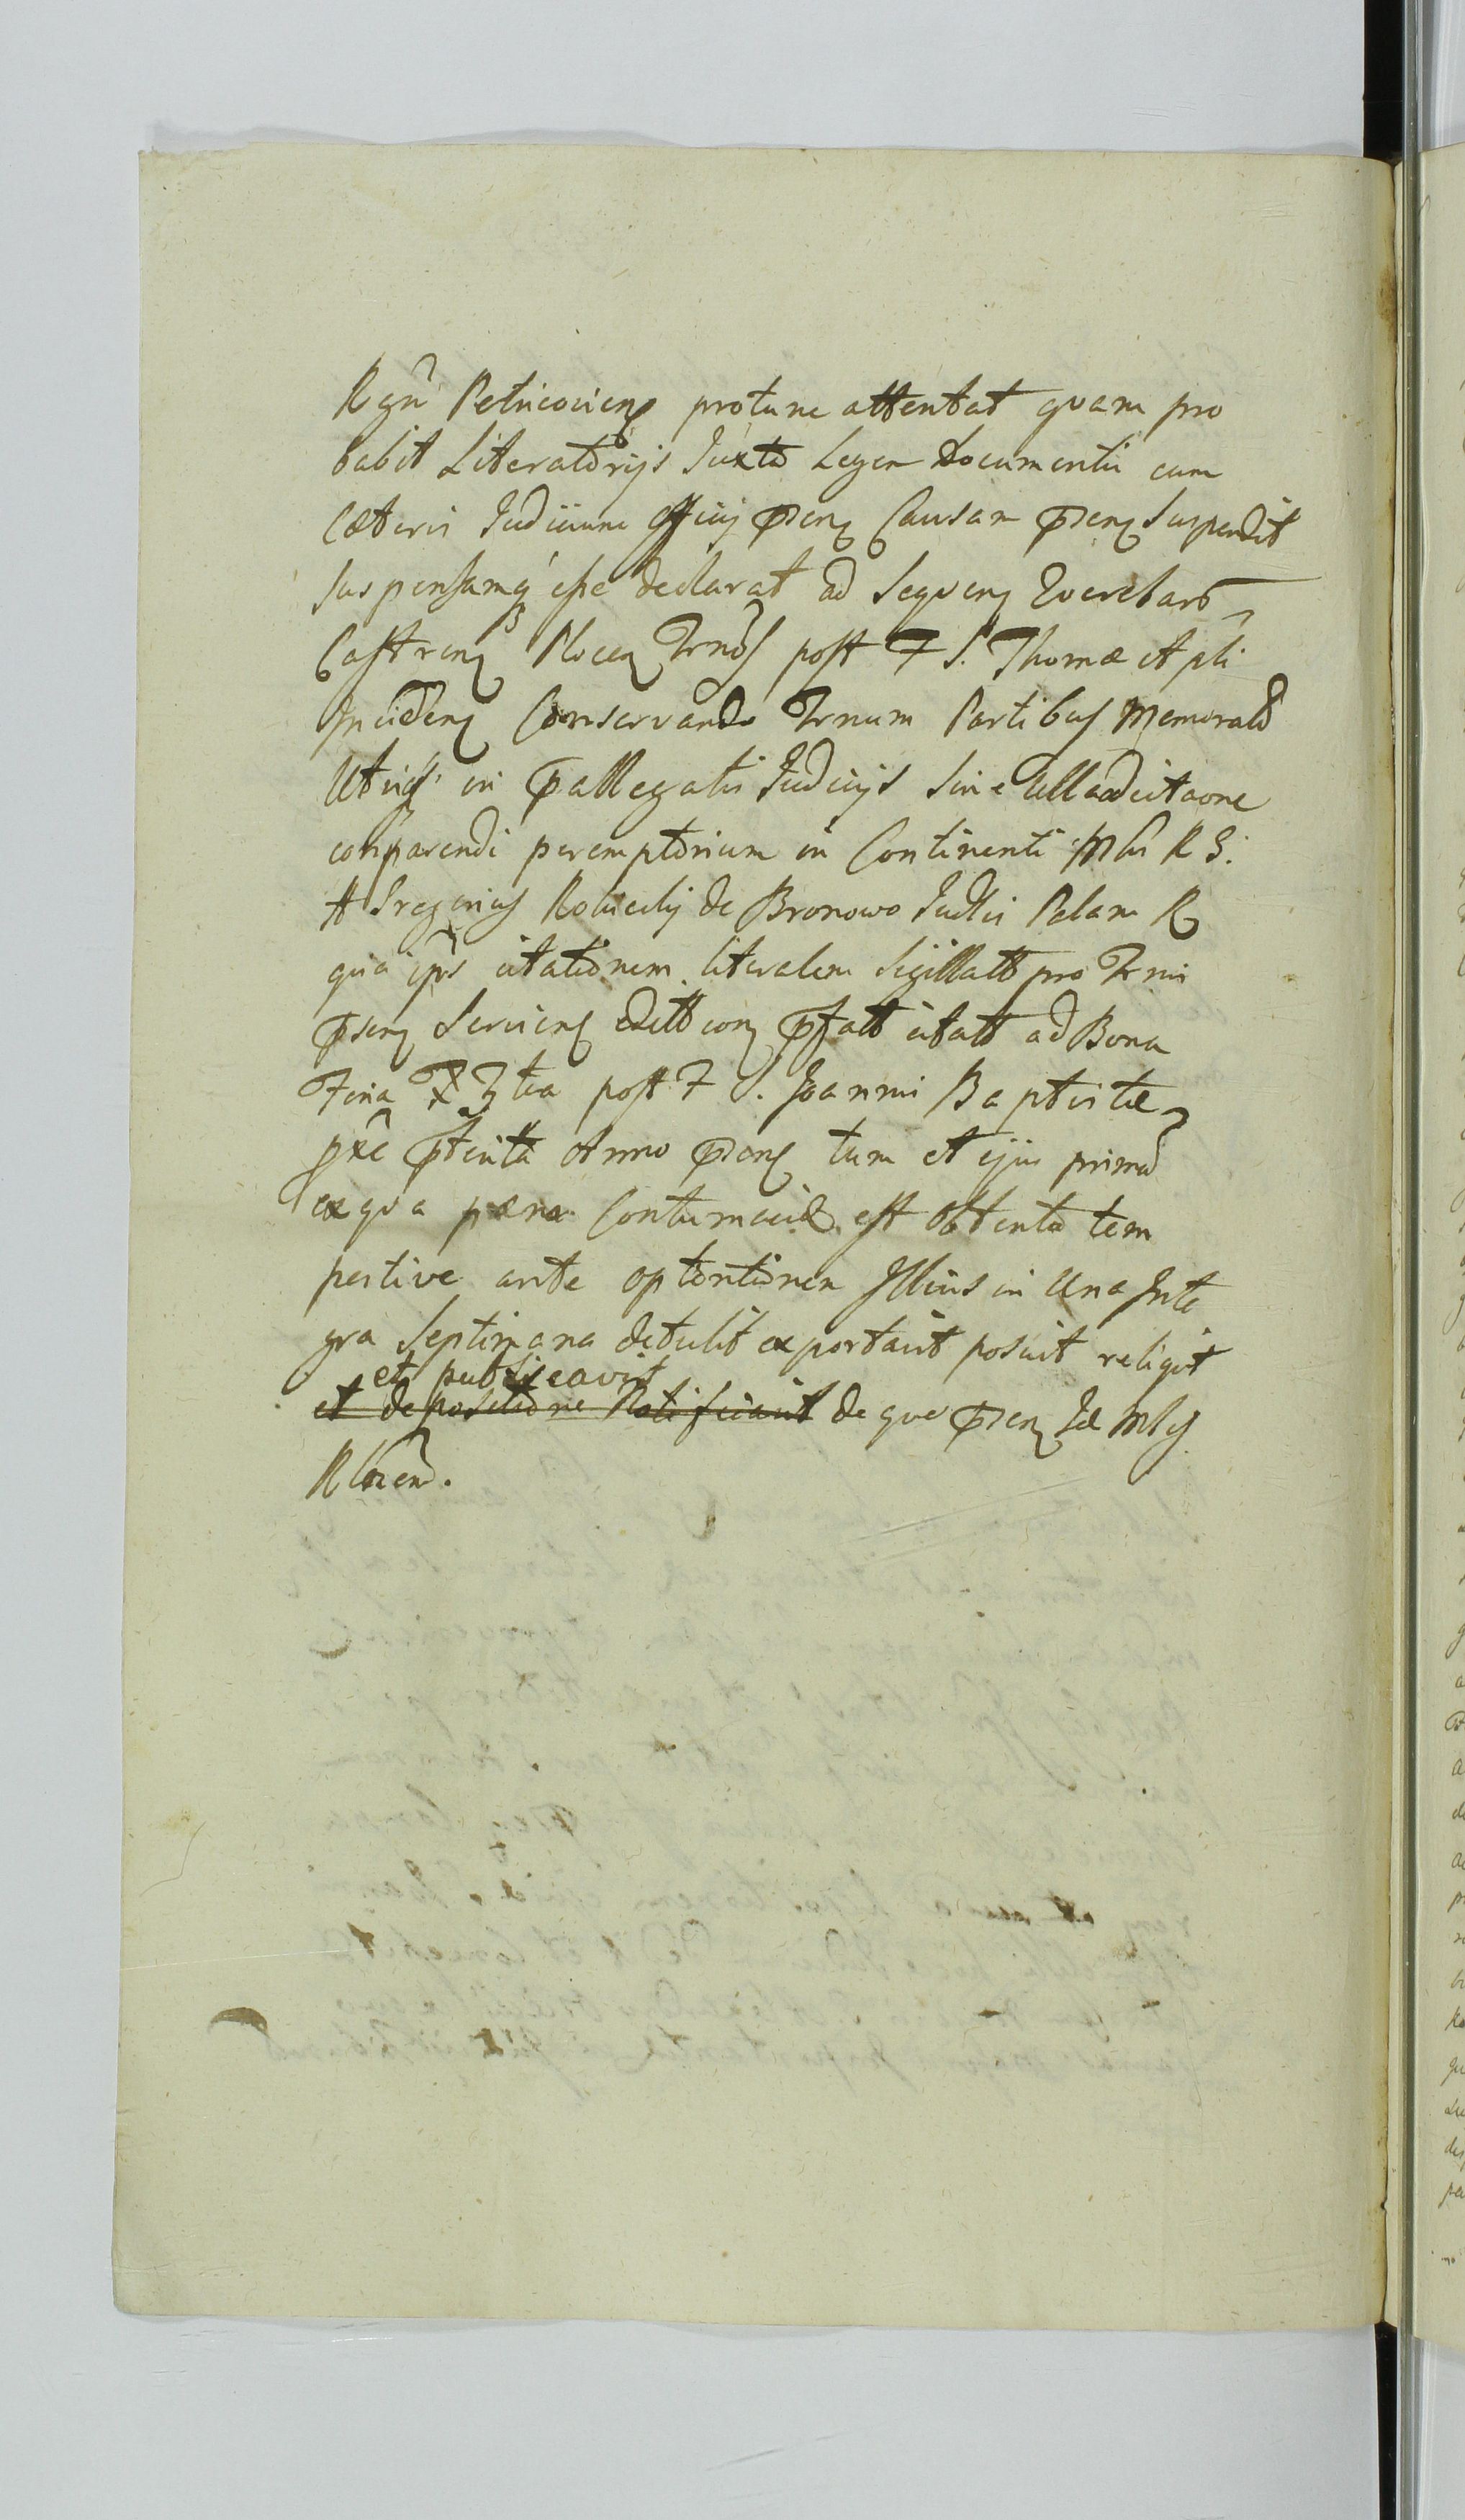 Rgni Petricovien protunc attentat quam pro
babit Literatorijs Juxta Legem Documentis cum
Cæteris Judicium Officij præsen Causam præsen Suspendit
Suspensamq esse declarat ad Sequen Querelarū
Castren Plocen Trnos post F S. Thomæ Apli
Inciden Conservando Trnum Partibus Memoratis
Utrisq in præallegatis Judicijs Sine Ulla adcitaone
comparendi peremptorium in Continenti Mlis R G.
A Gregorius de Bronowo Palam R
quia ipse citationem literalem Sigillatt pro Trnis
præsen Servien con præfatt citatt ad Bona
Feria post F S. Joannis Baptistæ
Anno præsen tum et ejus primæ
ex qua pæna Contumaciæ est obtenta tem
pestive ante optentionem Illius in Una Inte
gra Septimana detulit exportavit posuit reliqit
et publicavit
et depositione Notificavit de quo præsen